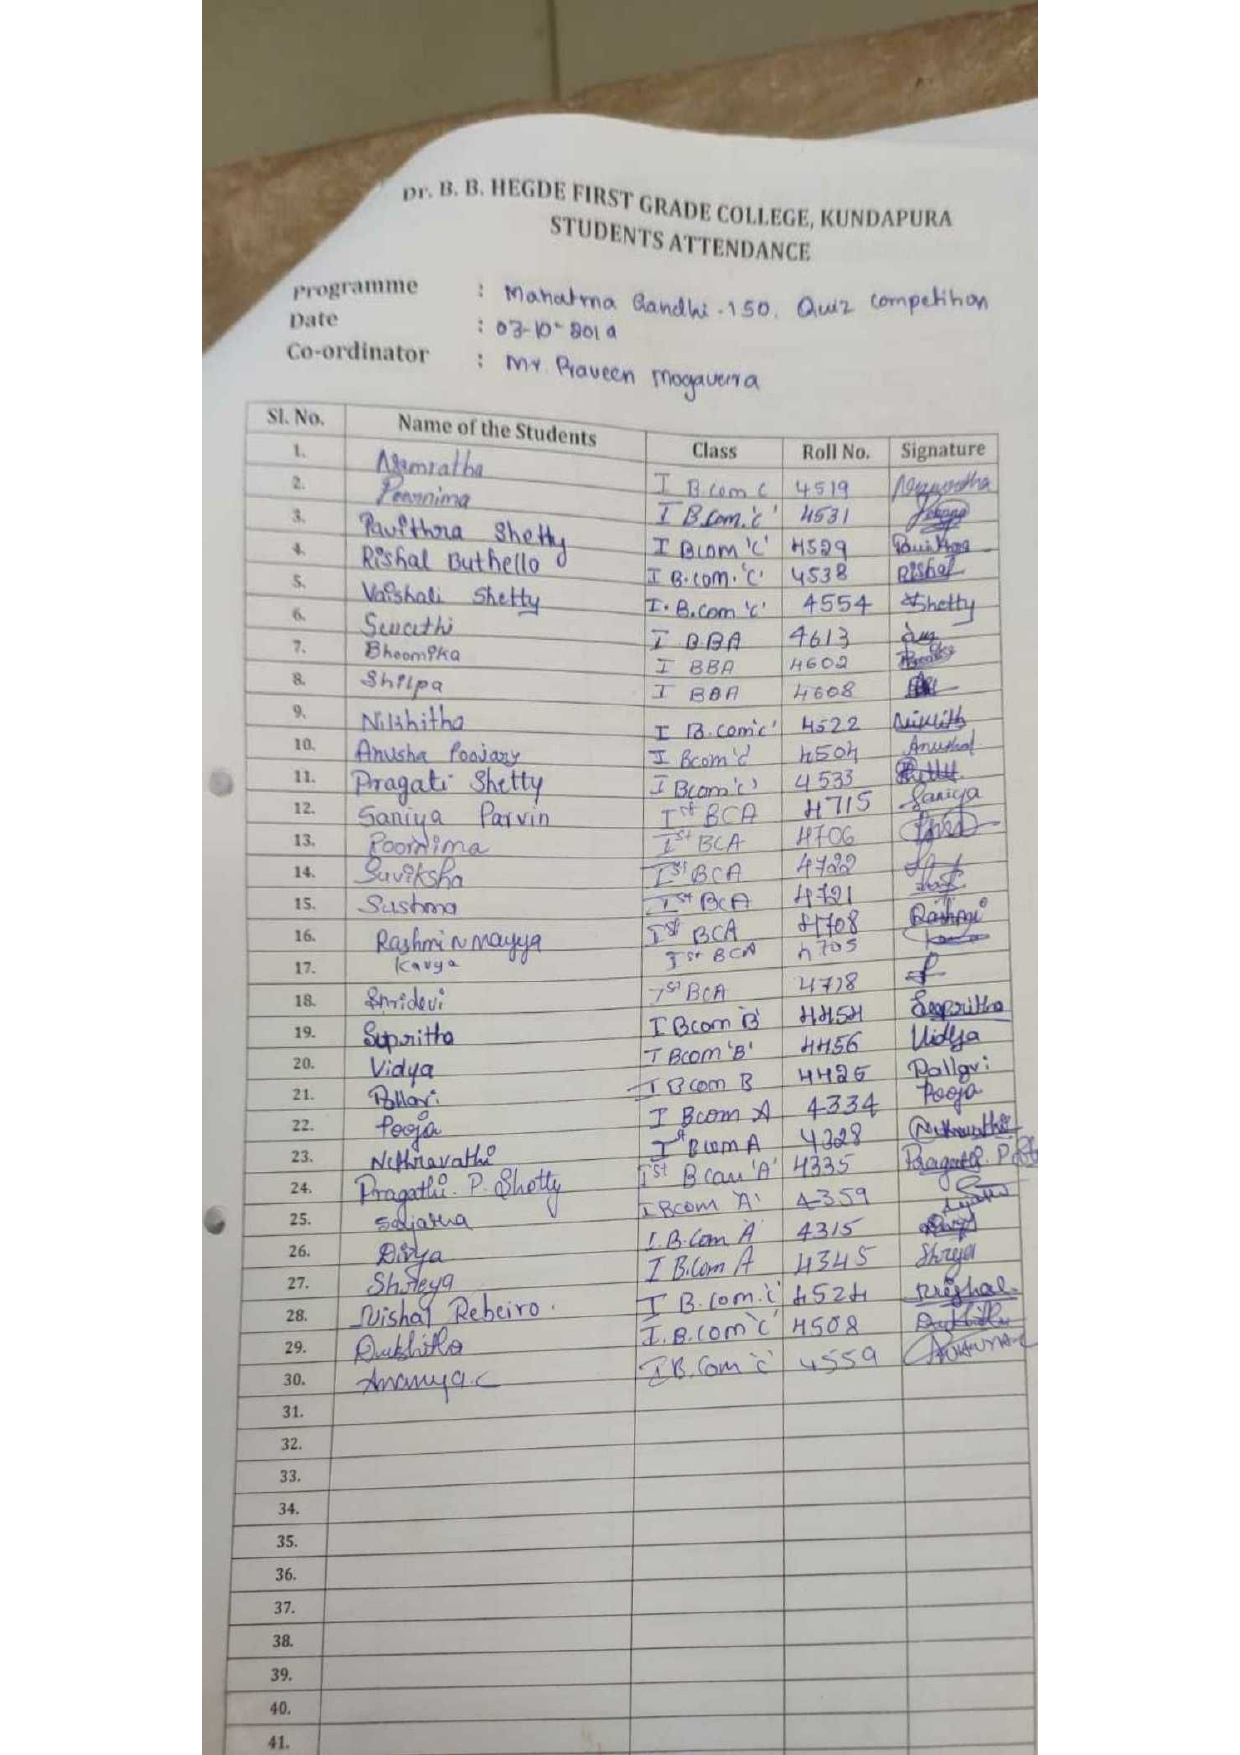 Dr. B. B. HEGDE FIRST GRADE COLLEGE, KUNDAPURA
STUDENTS ATTENDANCE
Programme : Mahatma Gandhi-150. Quiz competition
Date : 03-10-2019
Co-ordinator : Mr. Praveen Mogaveera
Sl. No. Name of the Students Class Roll No. Signature
1. Namratha I B.com C 4519 Namratha
2. Poornima I B.com.'c' 4531
3. Pavithra Shetty I Bcom 'c' 4529 Pavithra
4. Rishal Buthello I B.com.'c' 4538 Rishal
5. Vaishali Shetty I. B.com 'c' 4554 Shetty
6. Swathi I BBA 4613
7. Bhoomika I BBA 4602
8. Shilpa I BBA 4608
9. Nikhitha I B.com'c' 4522
10. Anusha Poojary I Bcom'c' 4504 Anusha
11. Pragati Shetty I Bcom'c' 4533
12. Saniya Parvin Ist BCA 4715 Saniya
13. Poornima Ist BCA 4706
14. Suviksha Ist BCA 4722
15. Sushma Ist BCA 4721
16. Rashmi N Mayya Ist BCA 4708 Rashmi
17. Kavya Ist BCA 4705
18. Shridevi Ist BCA 4718
19. Supritha I Bcom 'B' 4454 Supritha
20. Vidya I Bcom 'B' 4456 Vidya
21. Pallavi I Bcom B 4425 Pallavi
22. Pooja I Bcom A 4334 Pooja
23. Nethravathi Ist Bcom A 4328
24. Pragathi. P. Shetty Ist Bcom 'A' 4335
25. Sujatha I Bcom 'A' 4359
26. Divya I. B.Com A 4315
27. Shreya I B.Com A 4345 Shreya
28. Nishal Rebeiro. I B.com.'c' 4524
29. I.B.com 'c' 4508
30. Ananya.C I B.Com 'c' 4559
31.
32.
33.
34.
35.
36.
37.
38.
39.
40.
41.